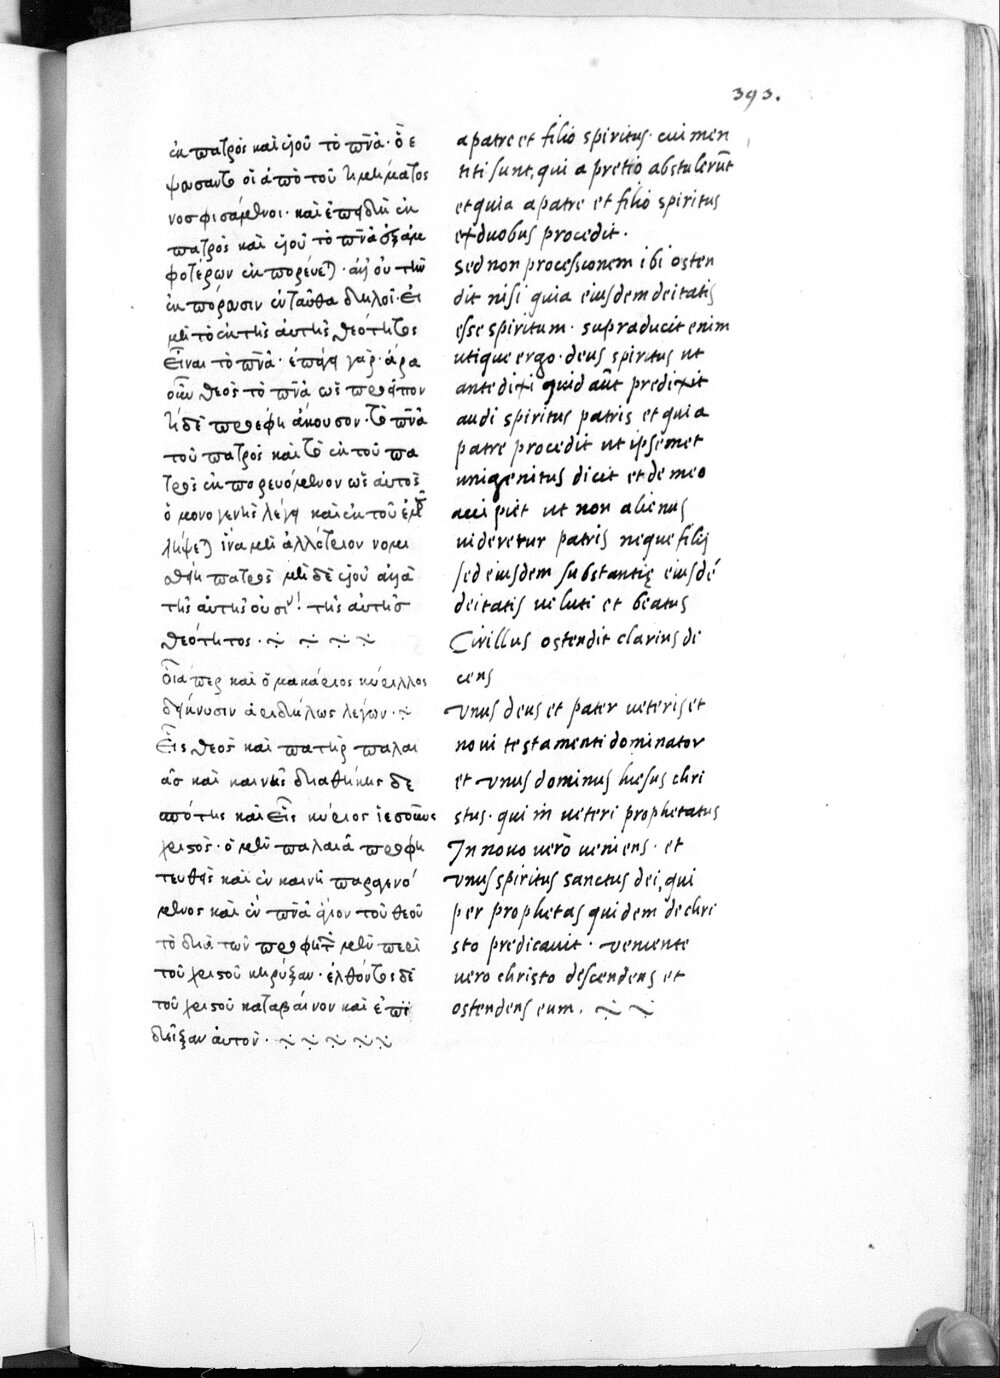 393.
ἐκ πατρὸς καὶ υἱοῦ τὸ πνᾶ· ὃ ἐ
ψεύσαντο οἱ ἀπὸ τοῦ τιμήματος
νοσφισάμενοι· καὶ ἐπειδὴ ἐκ
πατρὸς καὶ υἱοῦ τὸ πνᾶ ἐξ ἀμ
φοτέρων ἐκπορεύετ· ἀλλ' οὐ τὴν
ἐκπόρευσιν ἐνταῦθα δηλοῖ· εἰ
μὴ τὸ ἐκ τῆς αὐτῆς θεότητος
εἶναι τὸ πνᾶ· ἐπάγει γὰρ· ἄρα
οὖν θεὸς τὸ πνᾶ ὡς προεῖπον
τί δὲ προέφη ἄκουσον· τὸ πνᾶ
τοῦ πατρὸς καὶ τὸ ἐκ τοῦ πα
τρὸς ἐκπορευόμενον ὡς αὐτὸς
ὁ μονογενὴς λέγει καὶ ἐκ τοῦ ἐμοῦ
λήψετ ἵνα μὴ ἀλλότριον νομι
σθῆ πατρὸς μὴ δὲ υἱοῦ ἀλλὰ
τῆς αὐτῆς οὐσί τῆς αὐτῆς
θεότητος·
Ὅιαπερ καὶ ὁ μακάριος κύριλλος
δείκνυσιν ἀριδήλως λέγων·
Εἷς θεὸς καὶ πατὴρ παλαι
ᾶς καὶ καινῆς διαθήκης δε
σπότης καὶ εἷς κύριος ἰησοῦς
χριστός· ὁ μὲν παλαιᾶ προφη
τευθεὶς καὶ ἐν καινῆ παραγενό
μενος καὶ ἓν πνᾶ ἅγιον τοῦ θεοῦ
τὸ διὰ τῶν προφητ μὲν περὶ
τοῦ χριστοῦ κηρύξαν· ἐλθόντος δὲ
τοῦ χριστοῦ καταβαῖνον καὶ ἐπι
δεῖξαν αὐτόν·
a patre et filio spiritus· cui men
titi sunt, qui a pretio abstulerūt
et quia a patre et filio spiritus
ex duobus procedit·
sed non processionem ibi osten
dit nisi quia eiusdem deitatis
esse spiritum· supraducit enim
utique ergo· deus spiritus ut
ante dixi quid aūt predixit
audi spiritus patris et qui a
patre procedit ut ipsemet
unigenitus dicit et de meo
accipiet ut non alienus
videretur patris neque filij
sed eiusdem substantię eiusdē
deitatis veluti et beatus
Cirillus ostendit clarius di
cens
Vnus deus et pater veteris et
novi testamenti dominator
et Vnus dominus hiesus chri
stus· qui in veteri prophetatus
In novo vero veniens· et
Vnus spiritus sanctus dei, qui
per prophetas quidem de chri
sto predicavit· veniente
vero christo descendens et
ostendens eum.